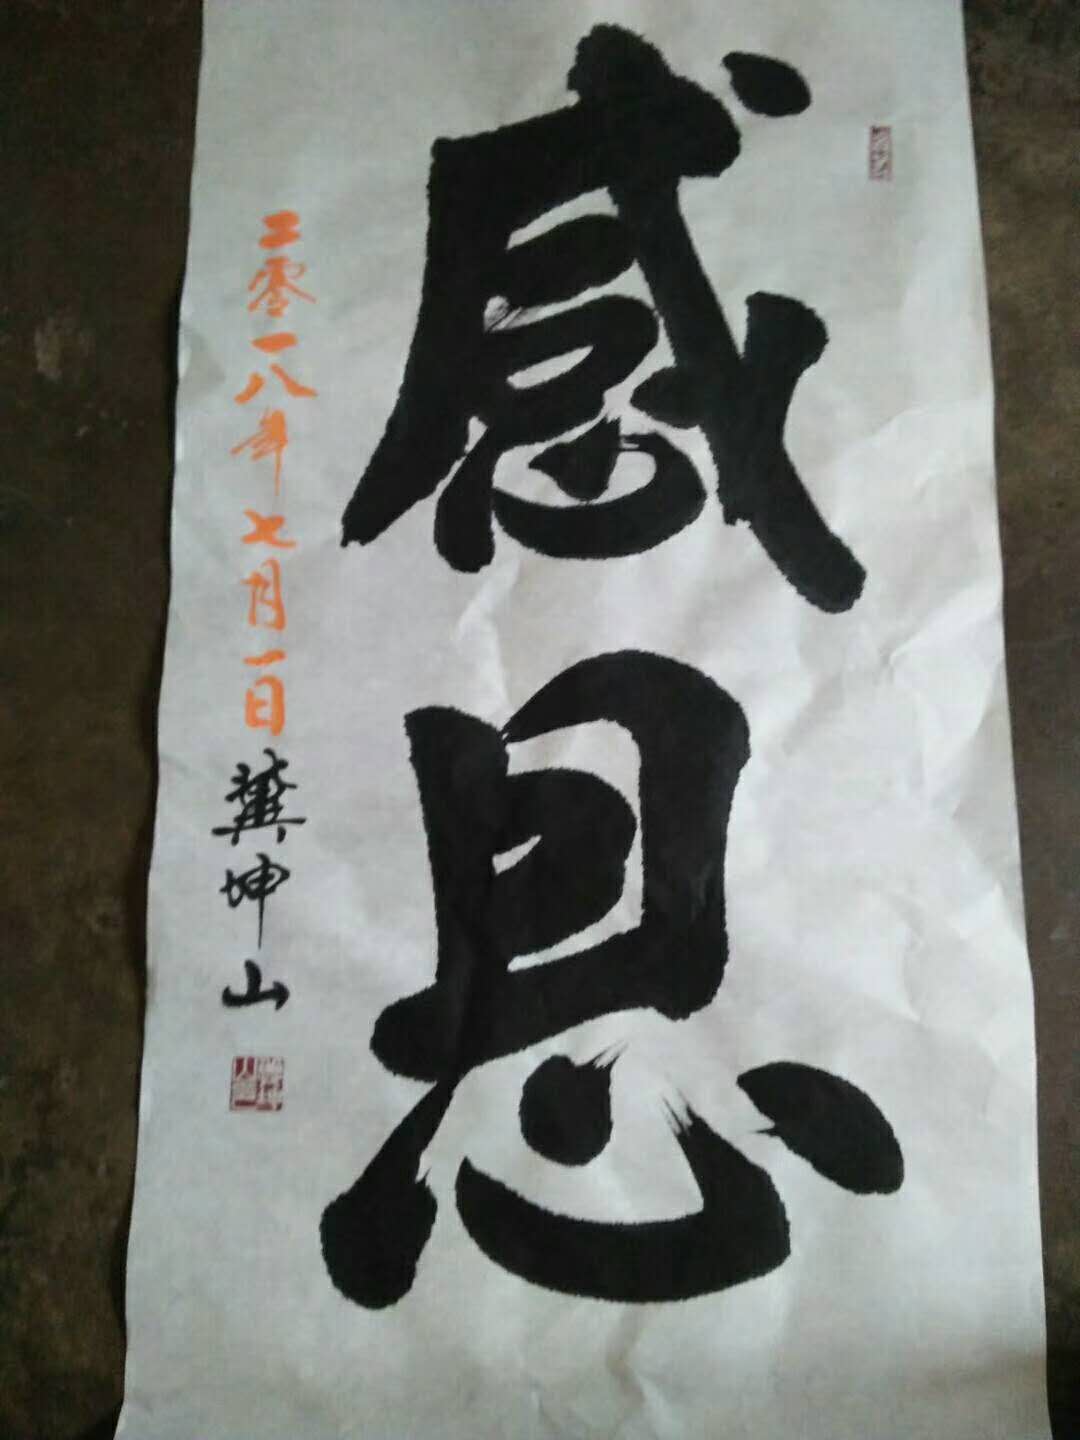 感恩
二零一八年七月一日
龚坤山